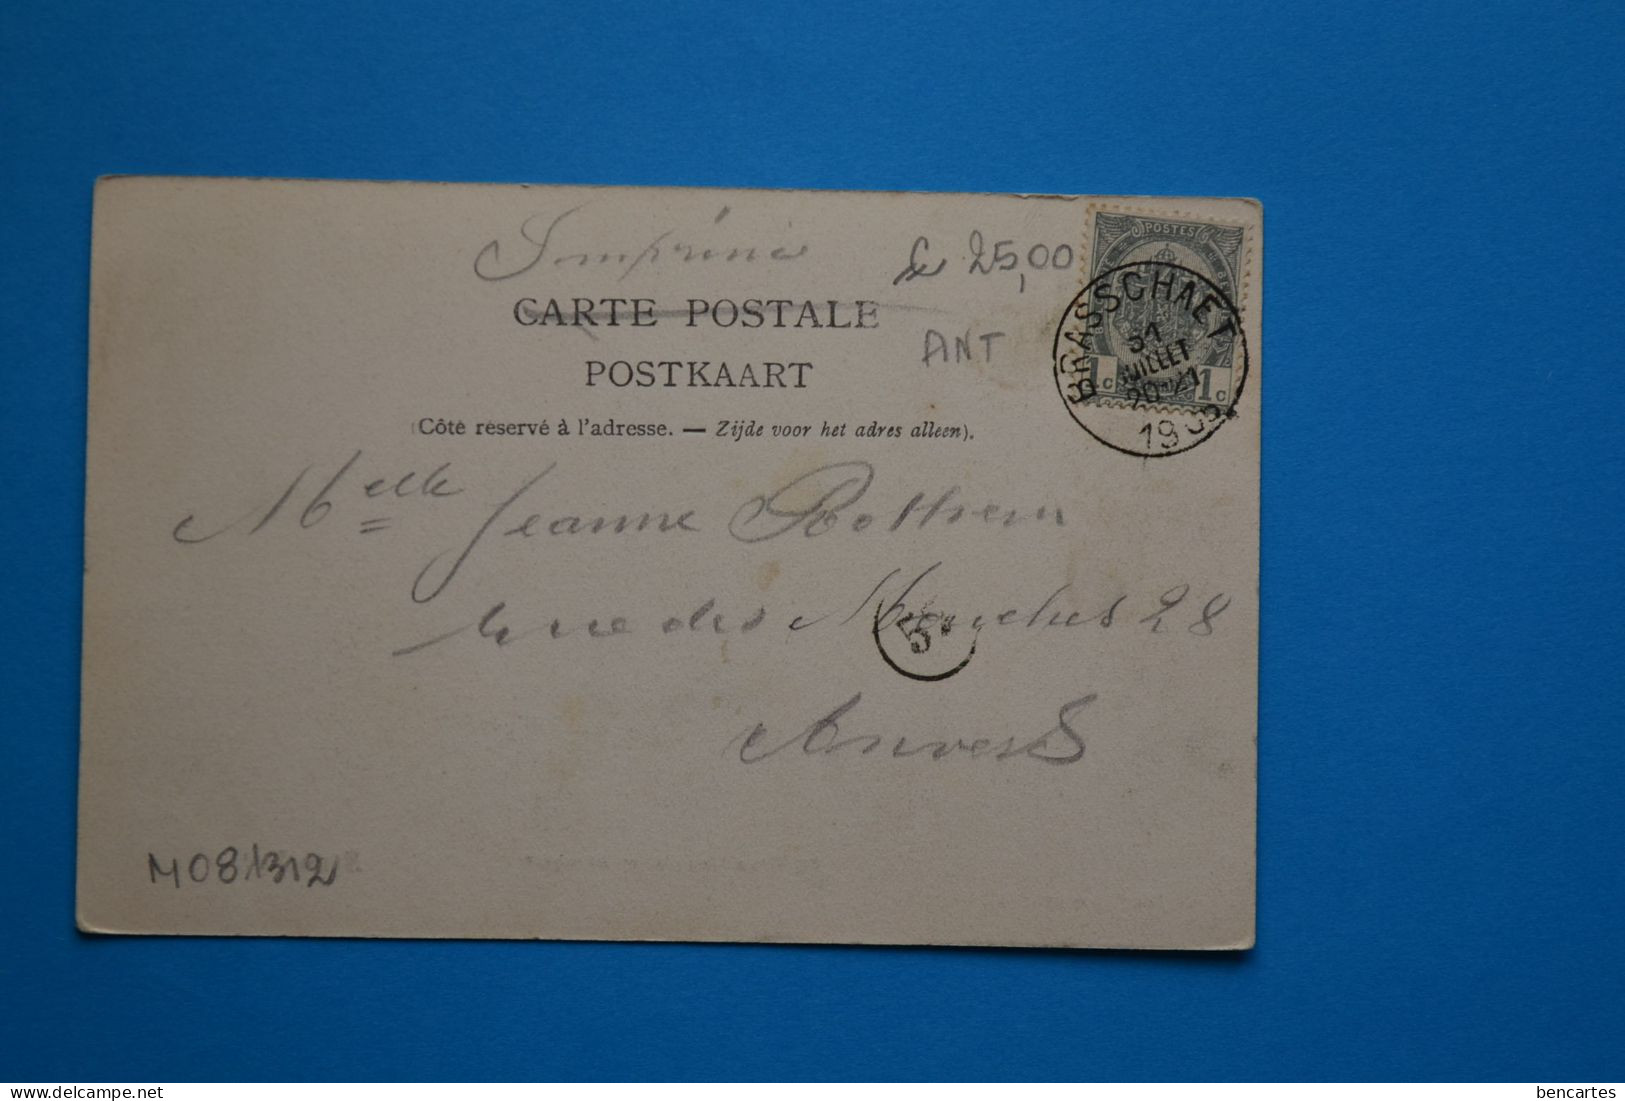 Imprimé
fr 25,00
CARTE POSTALE
ANT
POSTKAART
(Côté réservé à l'adresse. — Zijde voor het adres alleen).
POSTES
1 c 1 c
BRASSCHAET
31
JUILLET
20-21
Melle Jeanne Rothrem
rue des 28
5
Anvers
M081312
delcampe.net
bencartes